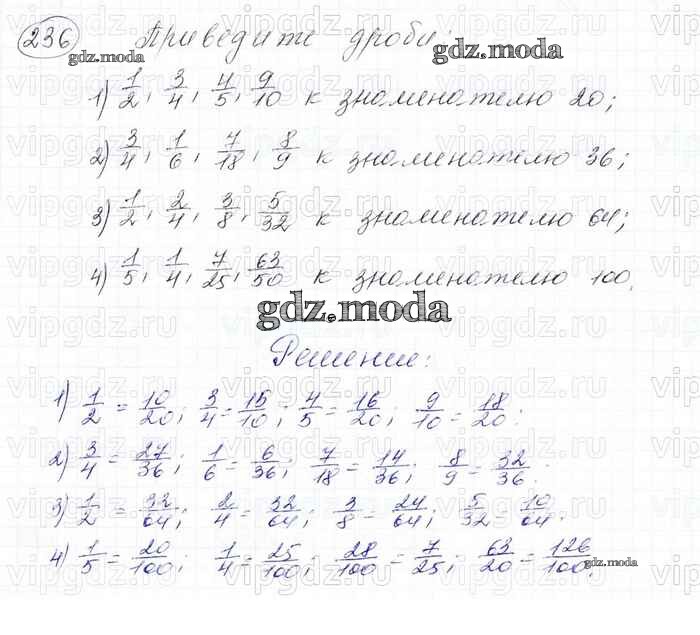 236 Приведите дроби
gdz.moda gdz.moda
1) 1/2, 3/4, 4/5, 9/10 к знаменателю 20;
2) 3/4, 1/6, 7/18, 8/9 к знаменателю 36;
3) 1/2, 2/4, 3/8, 5/32 к знаменателю 64;
4) 1/5, 1/4, 7/25, 63/50 к знаменателю 100.
gdz.moda
Решение:
1) 1/2 = 10/20; 3/4 = 15/10; 4/5 = 16/20; 9/10 = 18/20;
2) 3/4 = 27/36; 1/6 = 6/36; 7/18 = 14/36; 8/9 = 32/36;
3) 1/2 = 32/64; 2/4 = 32/64; 3/8 = 24/64; 5/32 10/64.
4) 1/5 = 20/100; 1/4 = 25/100; 28/100 = 7/25; 63/20 = 126/100.
gdz.moda